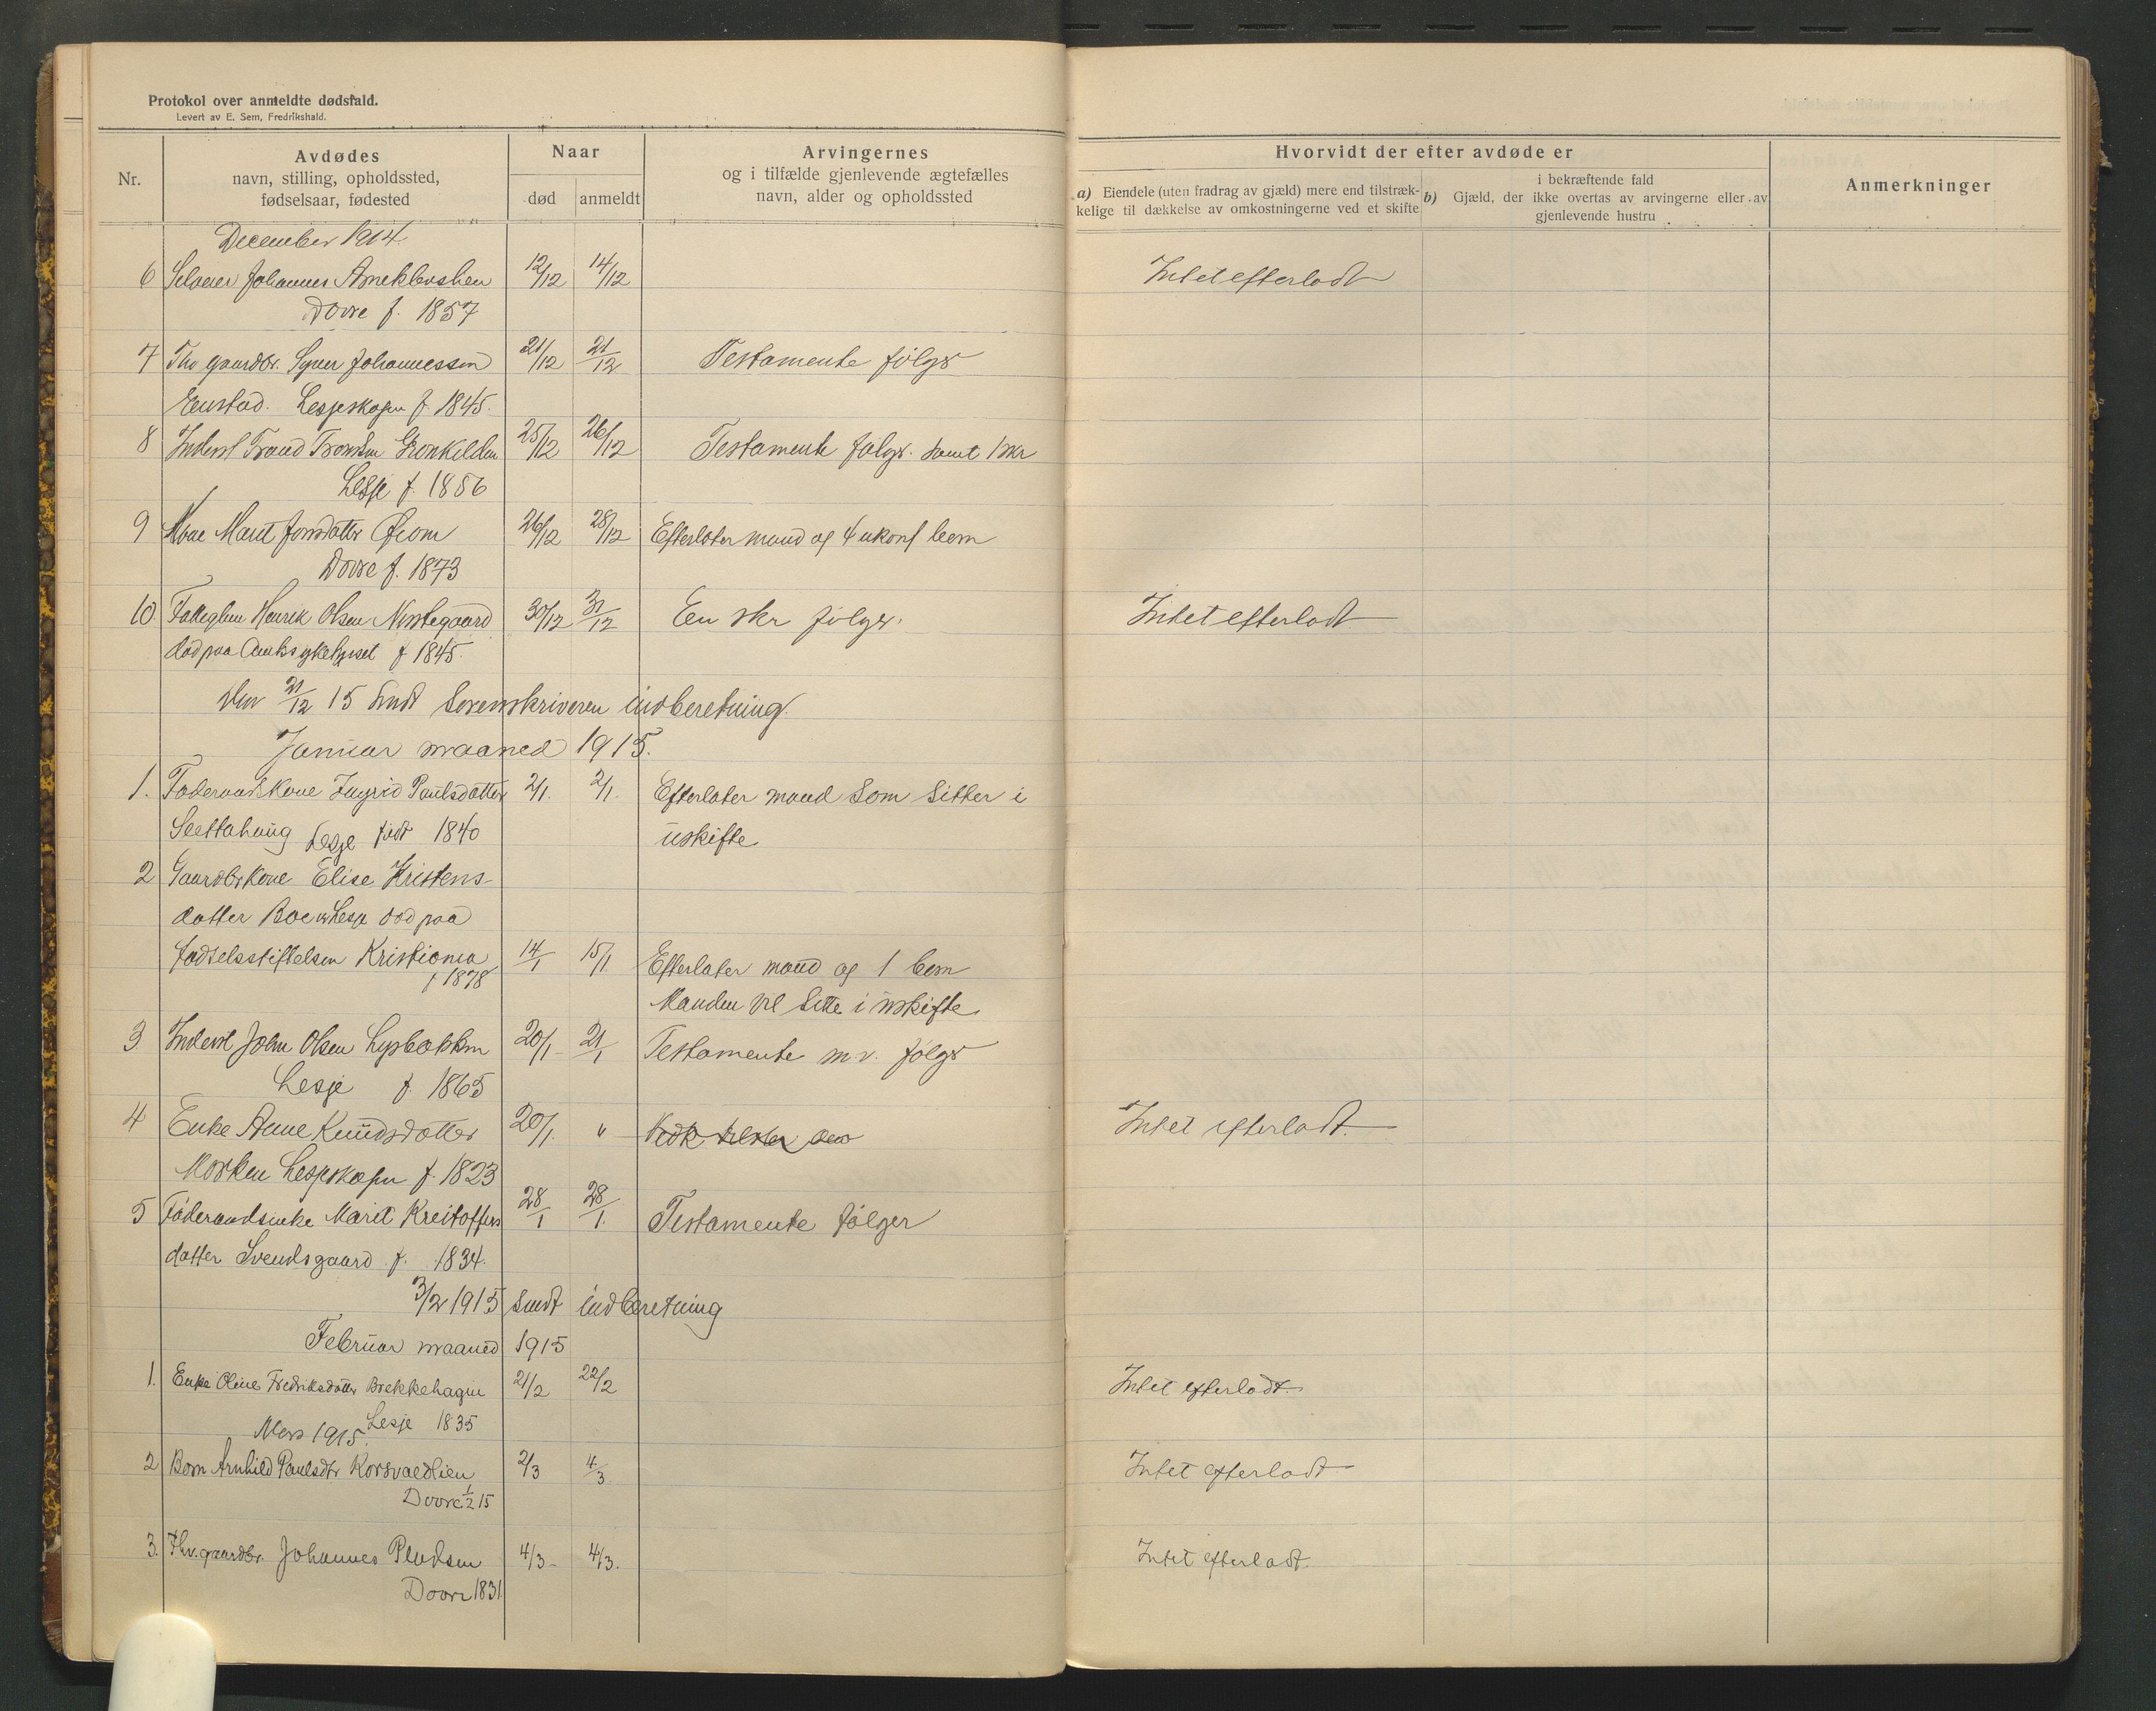 Protokol over anmeldte dødsfald.
Levert av E. Sem, Fredrikshald.
Nr.
Avdødes
navn, stilling, opholdssted,
fødselsaar, fødested
Naar
død anmeldt
Arvingernes
og i tilfælde gjenlevende ægtefælles
navn, alder og opholdssted
Hvorvidt der efter avdøde er
a) Eiendele (uten fradrag av gjæld) mere end tilstræk-
kelige til dækkelse av omkostningerne ved et skifte
i bekræftende fald
b) Gjæld, der ikke overtas av arvingerne eller av
gjenlevende hustru
Anmerkninger
December 1914
6 Selveier Johannes 12/12 14/12 Intet efterladt
Dovre f. 1857
7 Fhv gaardbr. Syver Johannessen 21/12 21/12 Testamente følger
Enstad. Lesjeskogen f. 1845.
8 Inderst Trond Tronsen 25/12 26/12 Testamente følger. samt 1 skr
Lesje f. 1856
9 Kone Marit Jonsdatter 26/12 28/12 Efterlater mand og 4 ukonf børn
Dovre f. 1873
10 Fattiglem Henrik Olsen Nystegaard 30/12 31/12 En skr følger. Intet efterladt
død paa Amtssykehuset f 1845.
Den 31/12 15 sendt Sorenskriveren indberetning.
Januar maaned 1915.
1. Føderaadskone Ingrid Paulsdatter 2/1. 2/1. Efterlater mand som sitter i
Lesje født 1840 uskifte
2 Gaardbrkone Elise Kristens-
datter Lesje død paa
fødselsstiftelsen Kristiania 14/1 15/1 Efterlater mand og 1 barn
f 1878
Manden vil sitte i uskifte
3. Inderst John Olsen Lysbakken 20/1 21/1 Testamente m.v. følger
Lesje f. 1865
4 Enke Anne Knudsdatter 20/1. " Intet efterladt.
Morken Lesjeskogen f. 1823
5 Føderaadsenke Marit Kreitoffers 28/1 28/1. Testamente følger
datter Svendsgaard f. 1834.
3/2 1915 sendt indberetning
Februar maaned 1915
1. Enke Oline Fredriksdatter Brekkehagen 21/2 22/2 Intet efterladt.
Lesje 1835
Mars 1915.
2 Barn Arnhild Paulsdtr Korsvaedlien 2/3 4/3 Intet efterladt
Dovre 1/2 15
3. Fhv. gaardbr. Johannes 4/3 4/3. Intet efterladt.
Dovre 1831